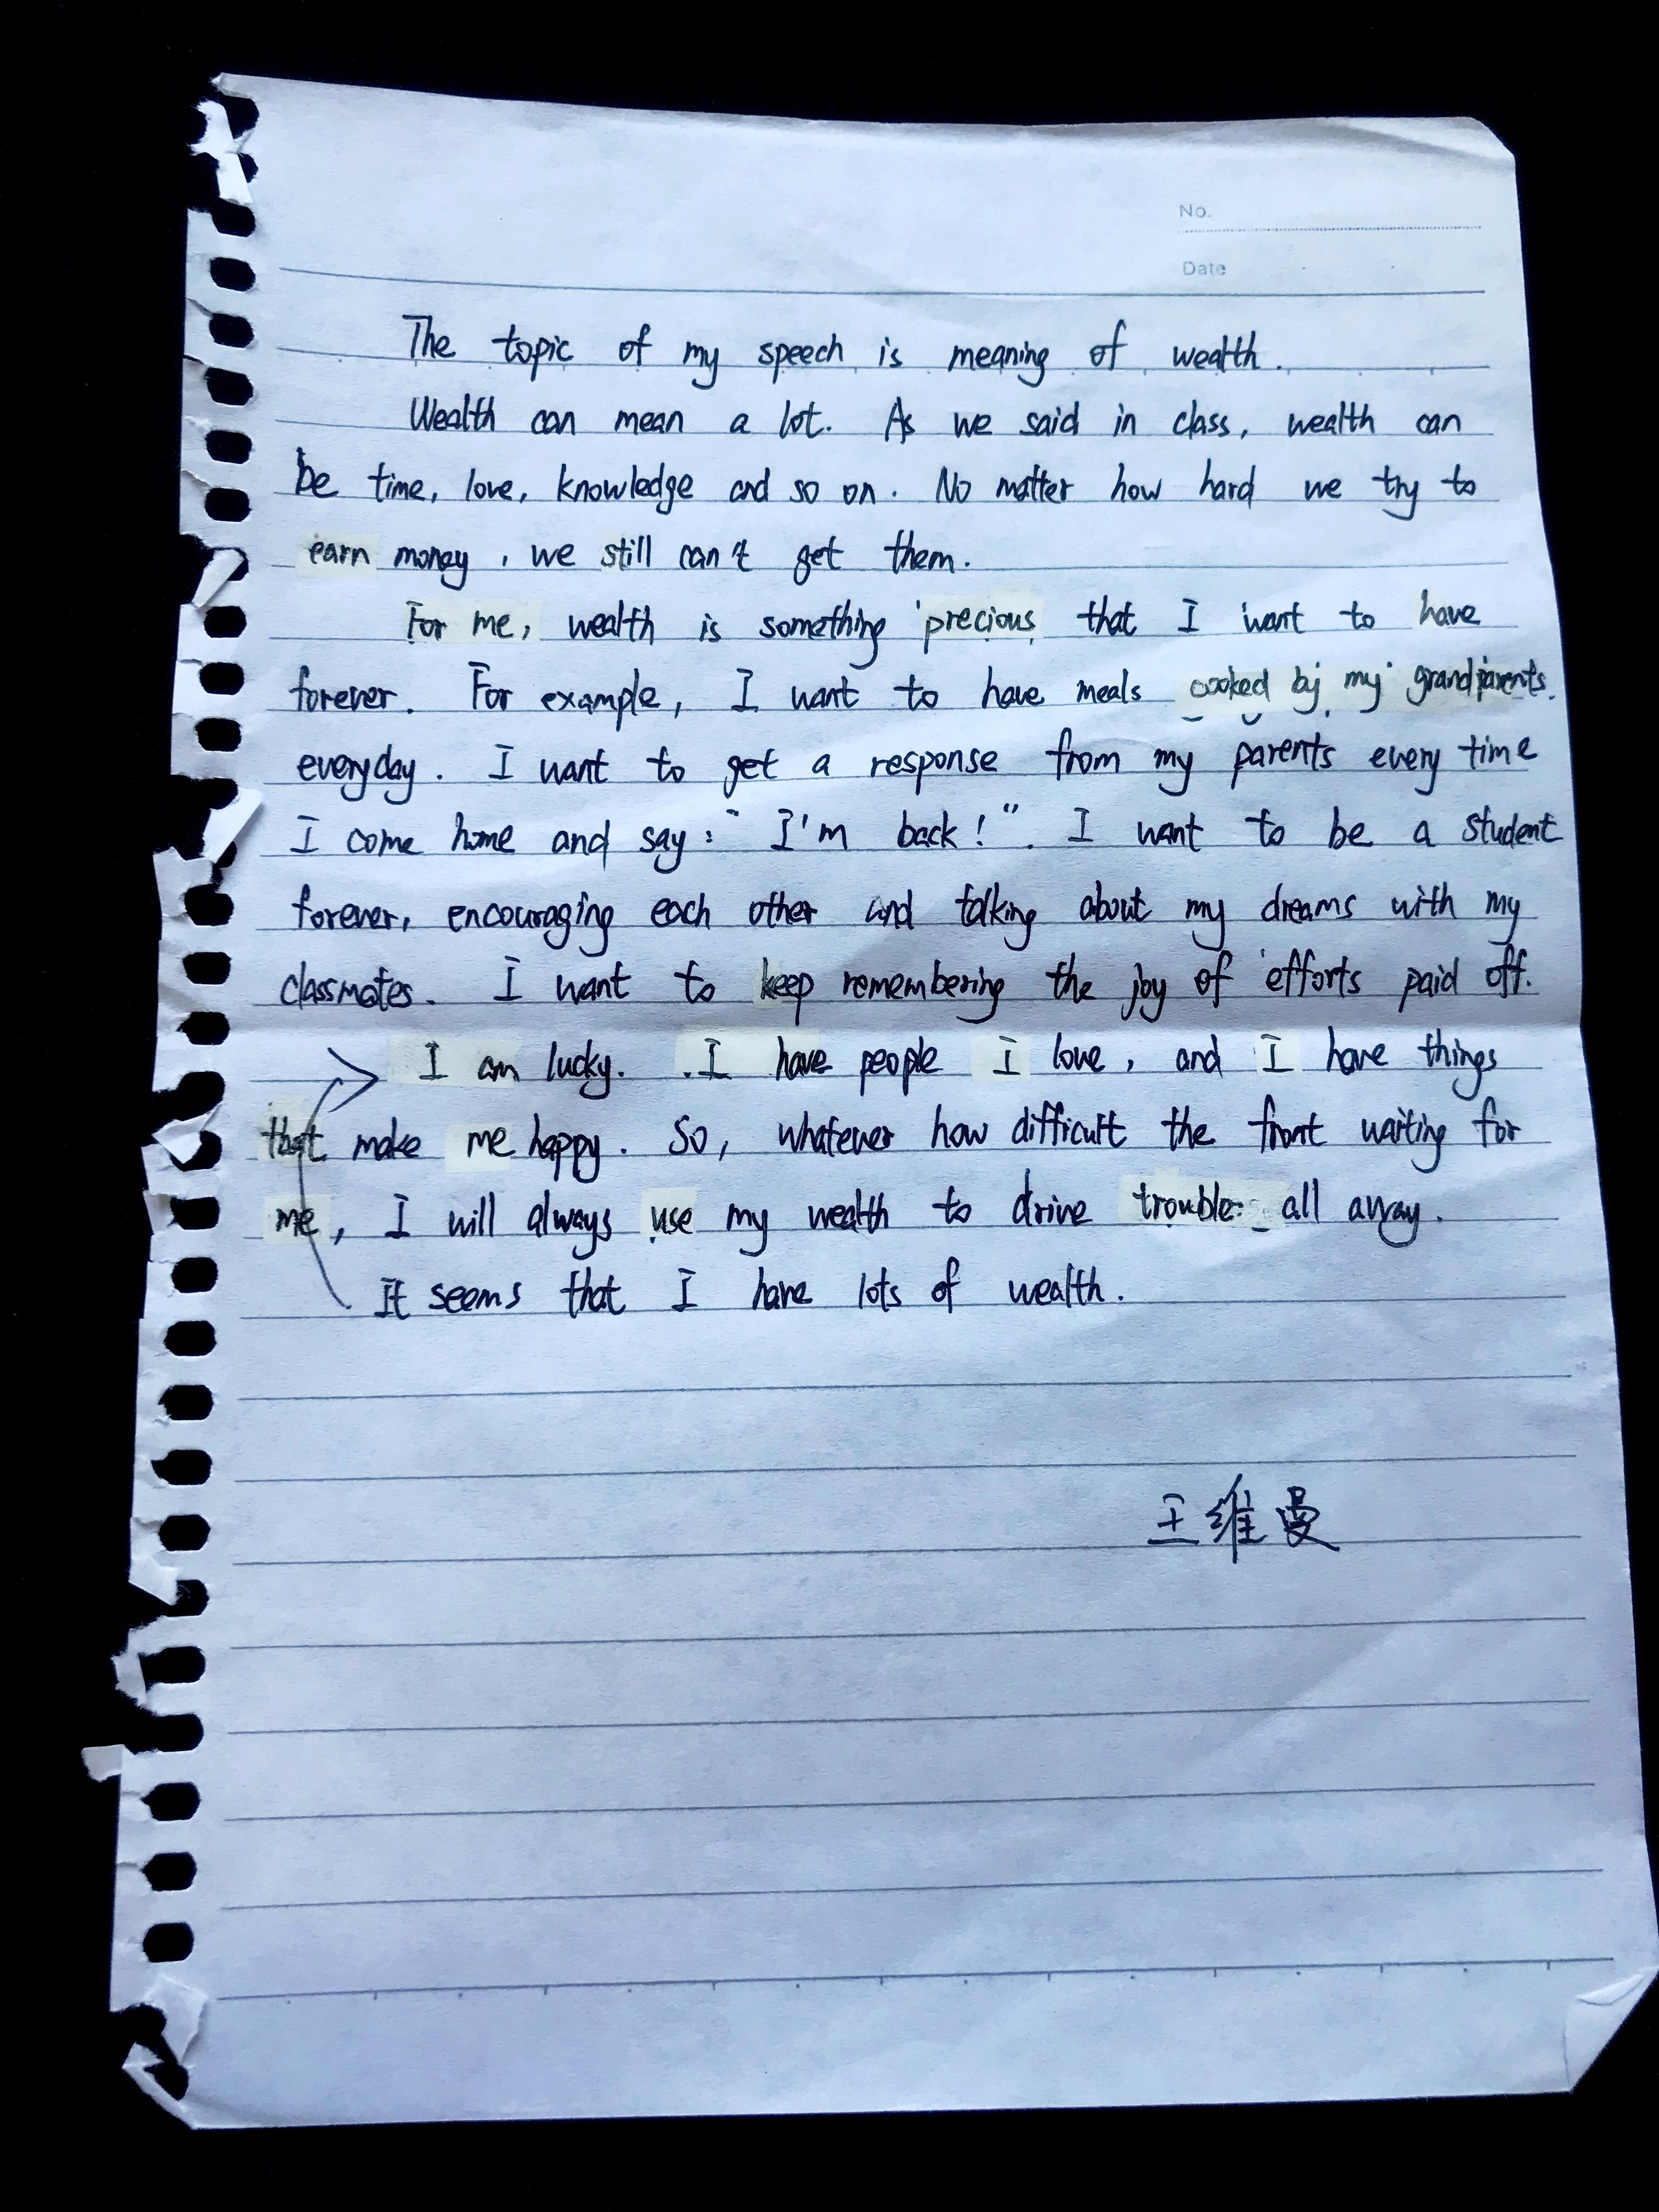 No.
Date
The topic of my speech is meaning of wealth.
Wealth can mean a lot. As we said in class, wealth can
be time, love, knowledge and so on. No matter how hard we try to
earn money, we still can't get them.
For me, wealth is something precious that I want to have
forever. For example, I want to have meals cooked by my grandparents.
everyday. I want to get a response from my parents every time
I come home and say: "I'm back!". I want to be a student
forever, encouraging each other and talking about my dreams with my
classmates. I want to keep remembering the joy of efforts paid off.
I am lucky. I have people I love, and I have things
that make me happy. So, whatever how difficult the front waiting for
me, I will always use my wealth to drive trouble all away.
It seems that I have lots of wealth.
王维曼